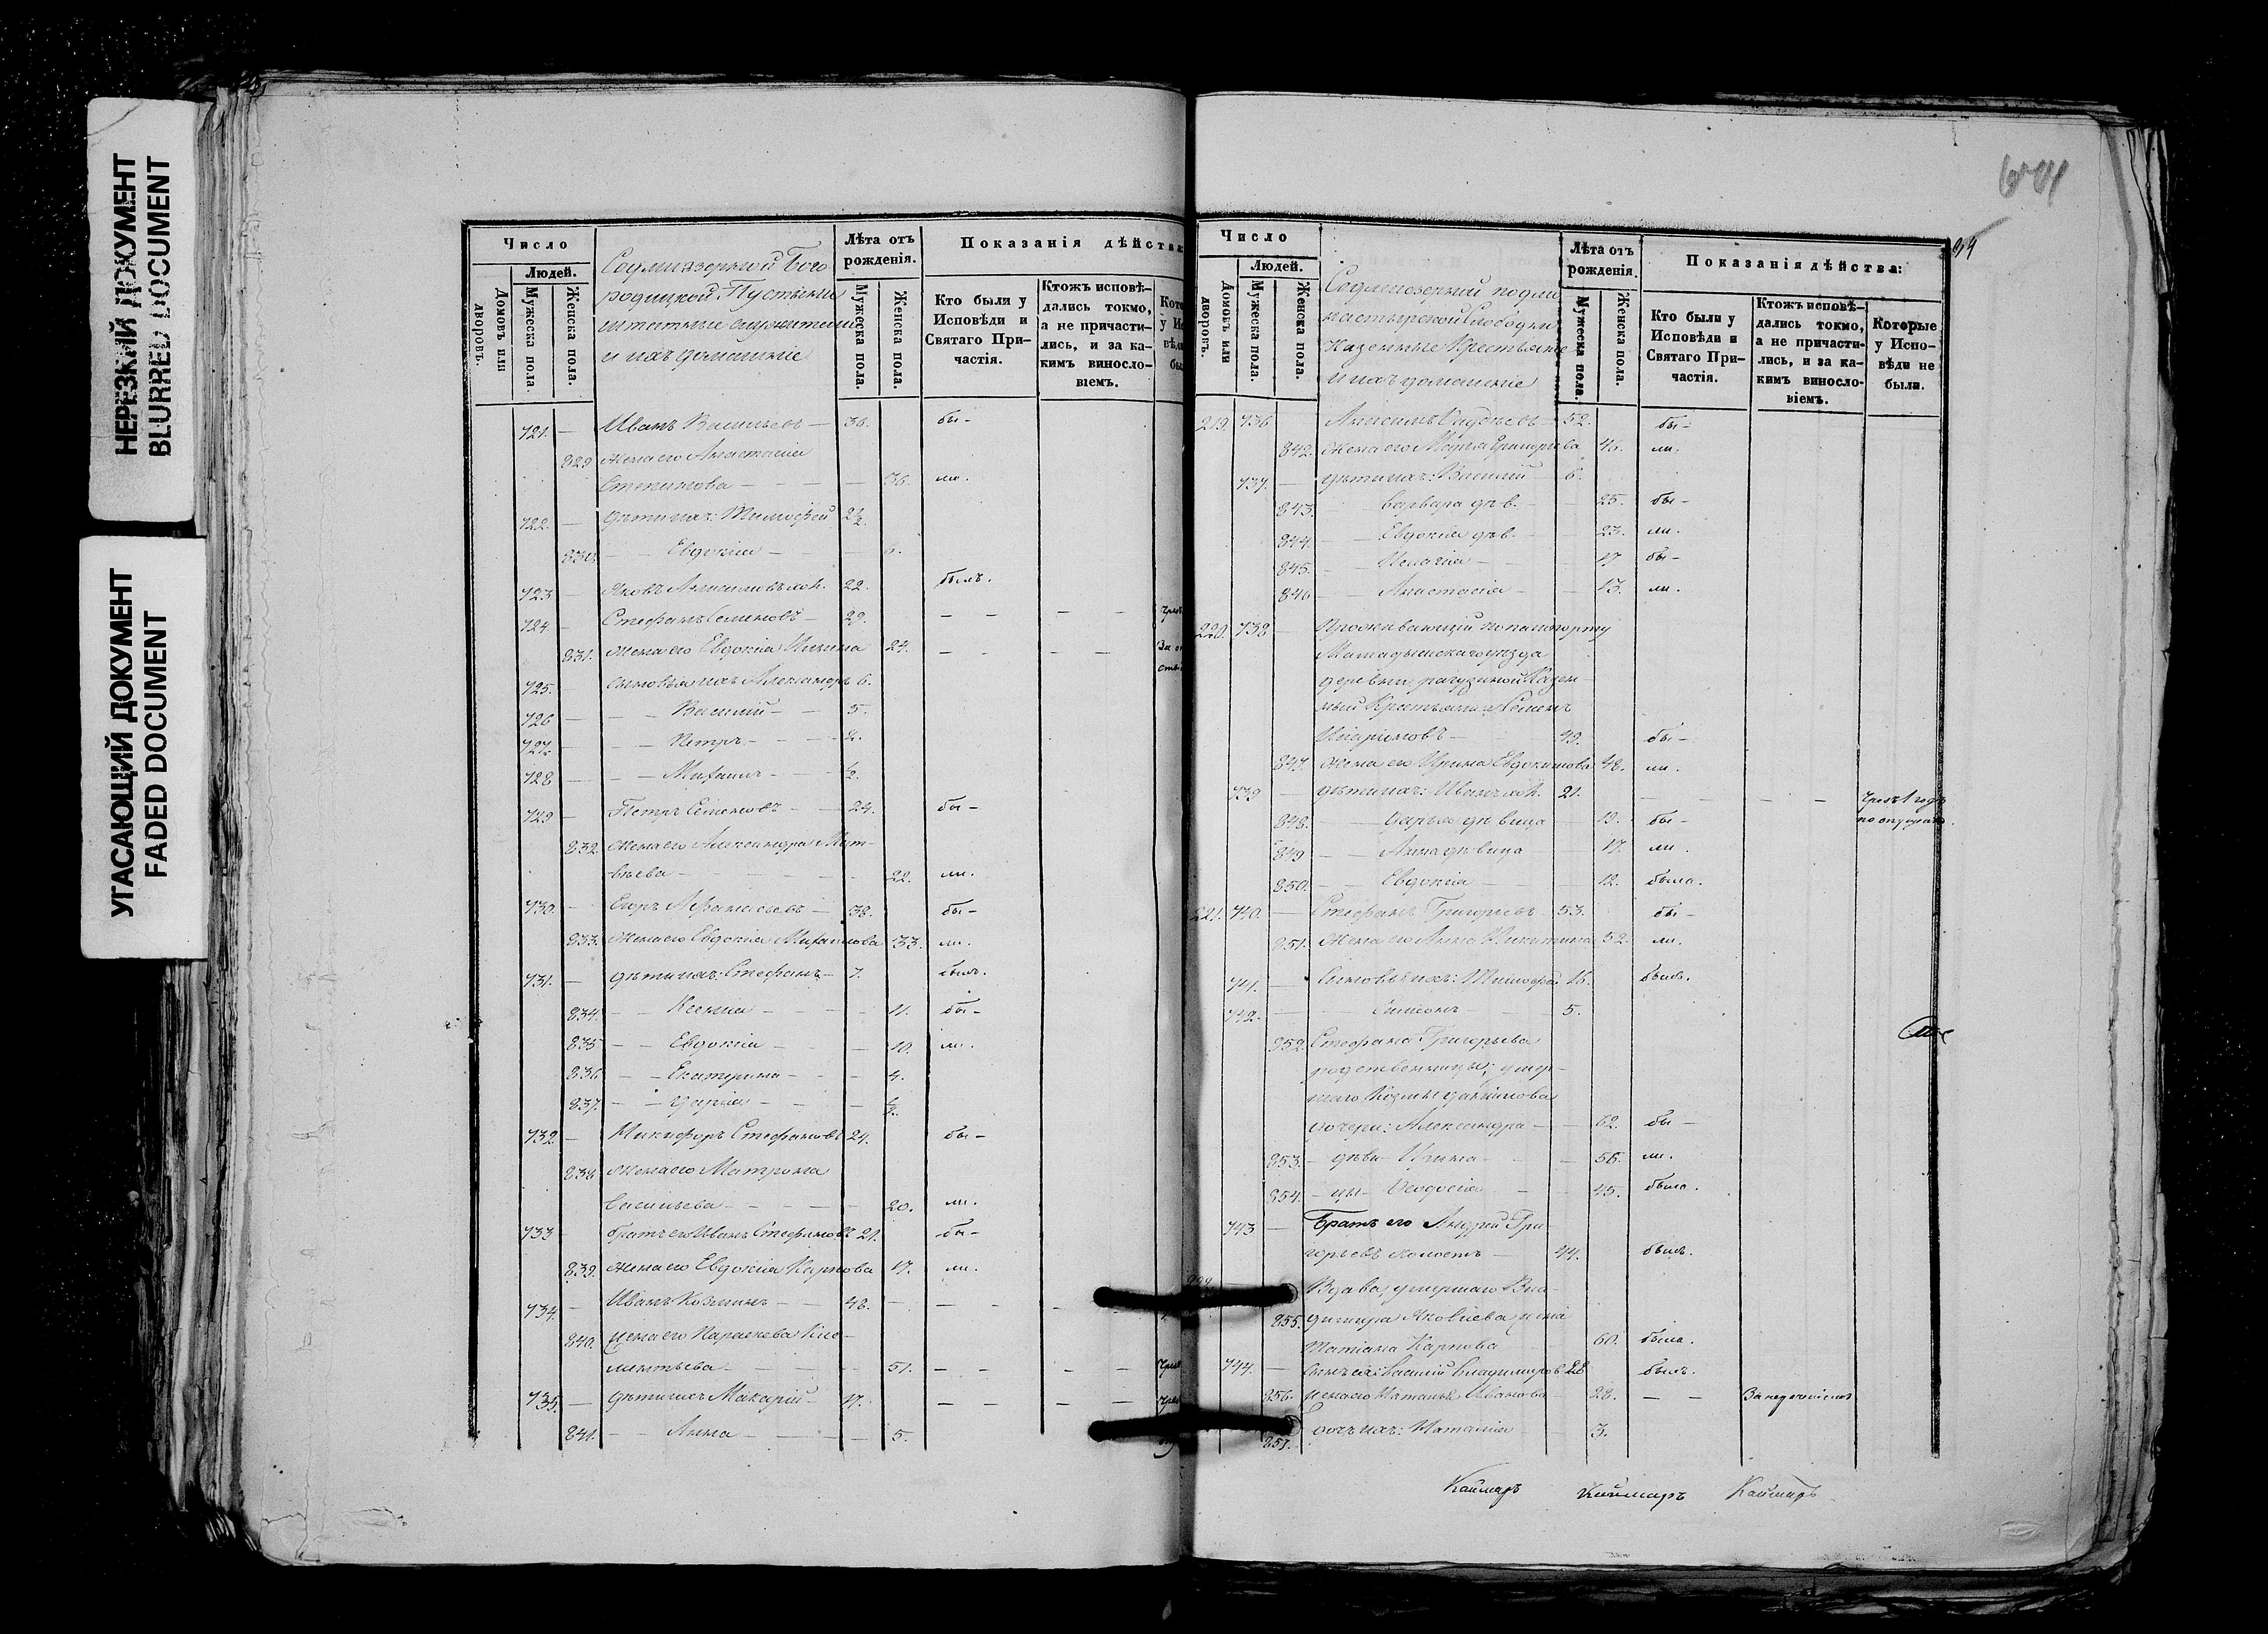 НЕРЕЗКИЙ ДОКУМЕНТ
BLURRED DOCUMENT
УГАСАЮЩИЙ ДОКУМЕНТ
FADED DOCUMENT
Число
Людей.
Домовъ или дворовъ.
Мужеска пола.
Женска пола.
Седмиезерной Бого
родицкой Пустыни
штатные служители
и ихъ домашніе
Лѣта отъ рожденія.
Мужеска пола.
Женска пола.
Показанія дѣйства
Кто были у Исповѣди и Святаго Причастія.
Ктожъ исповѣ-
дались токмо,
а не причасти-
лись, и за ка-
кимъ винosло-
віемъ.
721. — Иванъ Васильевъ — 36. бы-
829 жена его Анастасія
Степанова — 36. ли.
722. — дѣти ихъ: Тимофей 2½
830. — Евдокія — 6.
723 — Яковъ Анисимовъ хол. 22. былъ.
724. — Стефанъ Семеновъ — 29.
831. жена его Евдокія Ильина 24.
725. — сыновья ихъ Александръ 6.
726 — Василій — 5.
727. — Петръ — 2.
728 — Михаилъ — ½.
729 — Петръ Семеновъ — 24. бы-
832. жена его Александра Мат-
вѣева — 22. ли.
730. — Егоръ Афанасьевъ — 38. бы-
833. жена его Евдокія Михайлова 33. ли.
731. — дѣти ихъ: Стефанъ — 7. былъ.
834. — Ксенія — 11. бы-
835 — Евдокія — 10. ли.
836 — Екатерина — 4.
837. — Дарья — ½.
732 — Никифоръ Стефановъ 24. бы-
838 жена его Матрона
Васильева — 20. ли.
733 — братъ его Иванъ Стефановъ 21. бы-
839. жена его Евдокія Карпова 17. ли.
734. — Иванъ Козминъ — 48.
840. жена его Параскева Кле-
ментьева — 51.
735. — дѣти ихъ Макарій — 17.
841. — Анна — 5.
Число
Людей.
Домовъ или дворовъ.
Мужеска пола.
Женска пола.
Седмиозерной подмо
настырской Слободки
Казенные Крестьяне
и ихъ домашніе
Лѣта отъ рожденія.
Мужеска пола.
Женска пола.
Показанія дѣйства:
Кто были у Исповѣди и Святаго Причастія.
Ктожъ исповѣ-
дались токмо,
а не причасти-
лись, и за ка-
кимъ винosло-
віемъ.
Которые у Испо-
вѣди не были.
219. 736 52. бы-
842. жена его Марѳа Григорьева 46. ли.
737. — дѣти ихъ: Василій — 6.
843. — Варвара дѣв. — 25. бы-
844. — Евдокія дѣв. — 23. ли.
845. — Пелагія — 17 бы-
846 — Анастасія — 13. ли.
220. 738 — Проживающій по пашпорту
Мамадышскаго уѣзда
деревни Казен
ный Крестьянинъ Семенъ
49. бы-
847. жена его Ирина Евдокимова 48. ли.
739 — дѣти ихъ: Иванъ хол. 21. Чрезъ 1 годъ
848. — Дарья дѣвица — 19. бы-
849 — Анна дѣвица — 17. ли.
850. — Евдокія — 12. была.
221. 740. — Стефанъ Григорьевъ 53. бы-
851. жена его Анна Никитина 52. ли.
741. — Сыновья ихъ: Тимофей 16. былъ.
742. — Симеонъ — 5.
852. Стефана Григорьева
родственницы; умер-
шаго Козмы
дочери: Александра — 62. бы-
853. — дѣви- Ирина — 56. ли.
854. — цы — Ѳеодосія — 45. была.
743 — Братъ его Андрей Гри-
горьевъ холостъ — 44. былъ.
222 Вдова, умершаго Вла-
855. димира Яковлева жена
Татіана Карпова — 60. была.
744. — сынъ ея: Василій Владимировъ 28 былъ.
856. жена его Наталья Иванова — 28.
857. дочь ихъ: Наталія — 3.
Каймаръ Каймаръ Каймаръ